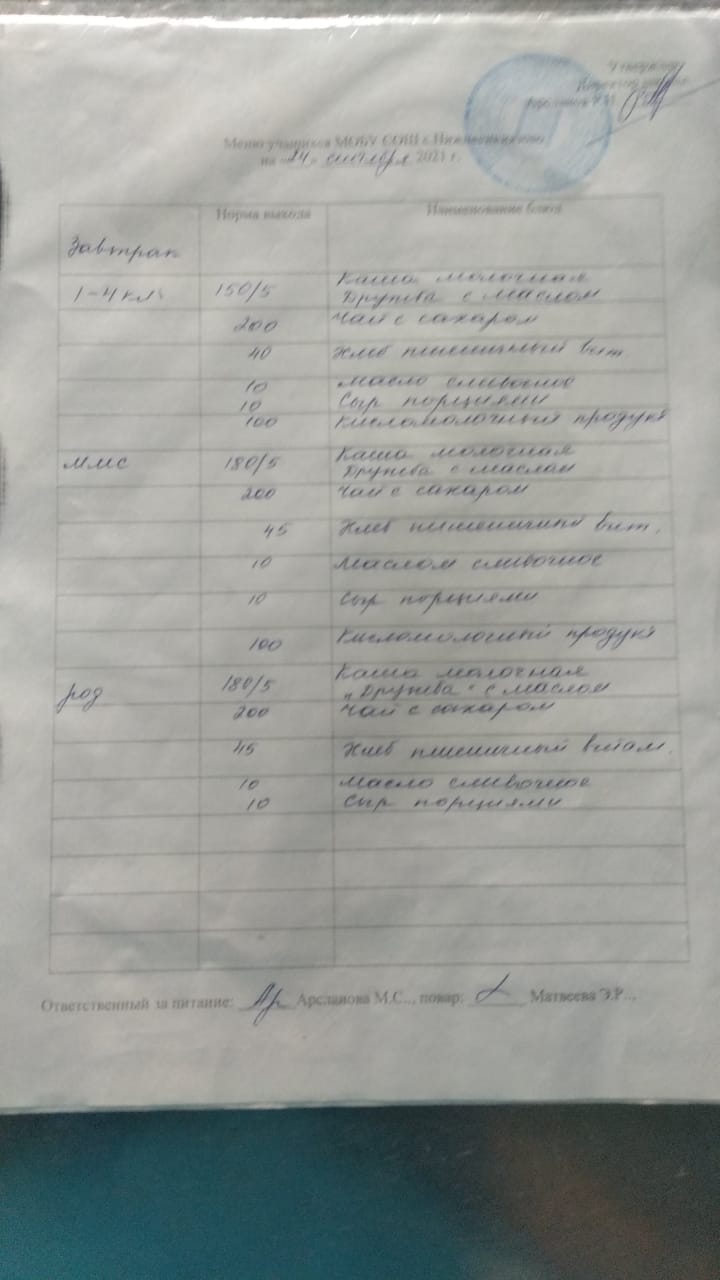 Утверждаю
Директор школы
Арсланов
Меню учащихся МОБУ СОШ с.
на «24» сентября 2021 г.
Норма выхода Наименование блюд
Завтрак
1-4 кл. 150/5 Каша молочная
Дружба с маслом
200 Чай с сахаром
40 Хлеб пшеничный вит.
10 Масло сливочное
10 Сыр порциями
100 Кисломолочный продукт
ммс 180/5 Каша молочная
Дружба с маслом
200 Чай с сахаром
45 Хлеб пшеничный вит.
10 Маслом сливочное
10 Сыр порциями
100 Кисломолочный продукт
род 180/5 Каша молочная
"Дружба" с маслом
200 Чай с сахаром
45 Хлеб пшеничный витам.
10 Масло сливочное
10 Сыр порциями
Ответственный за питание: Арсланова М.С.., повар: Матвеева Э.Р..,